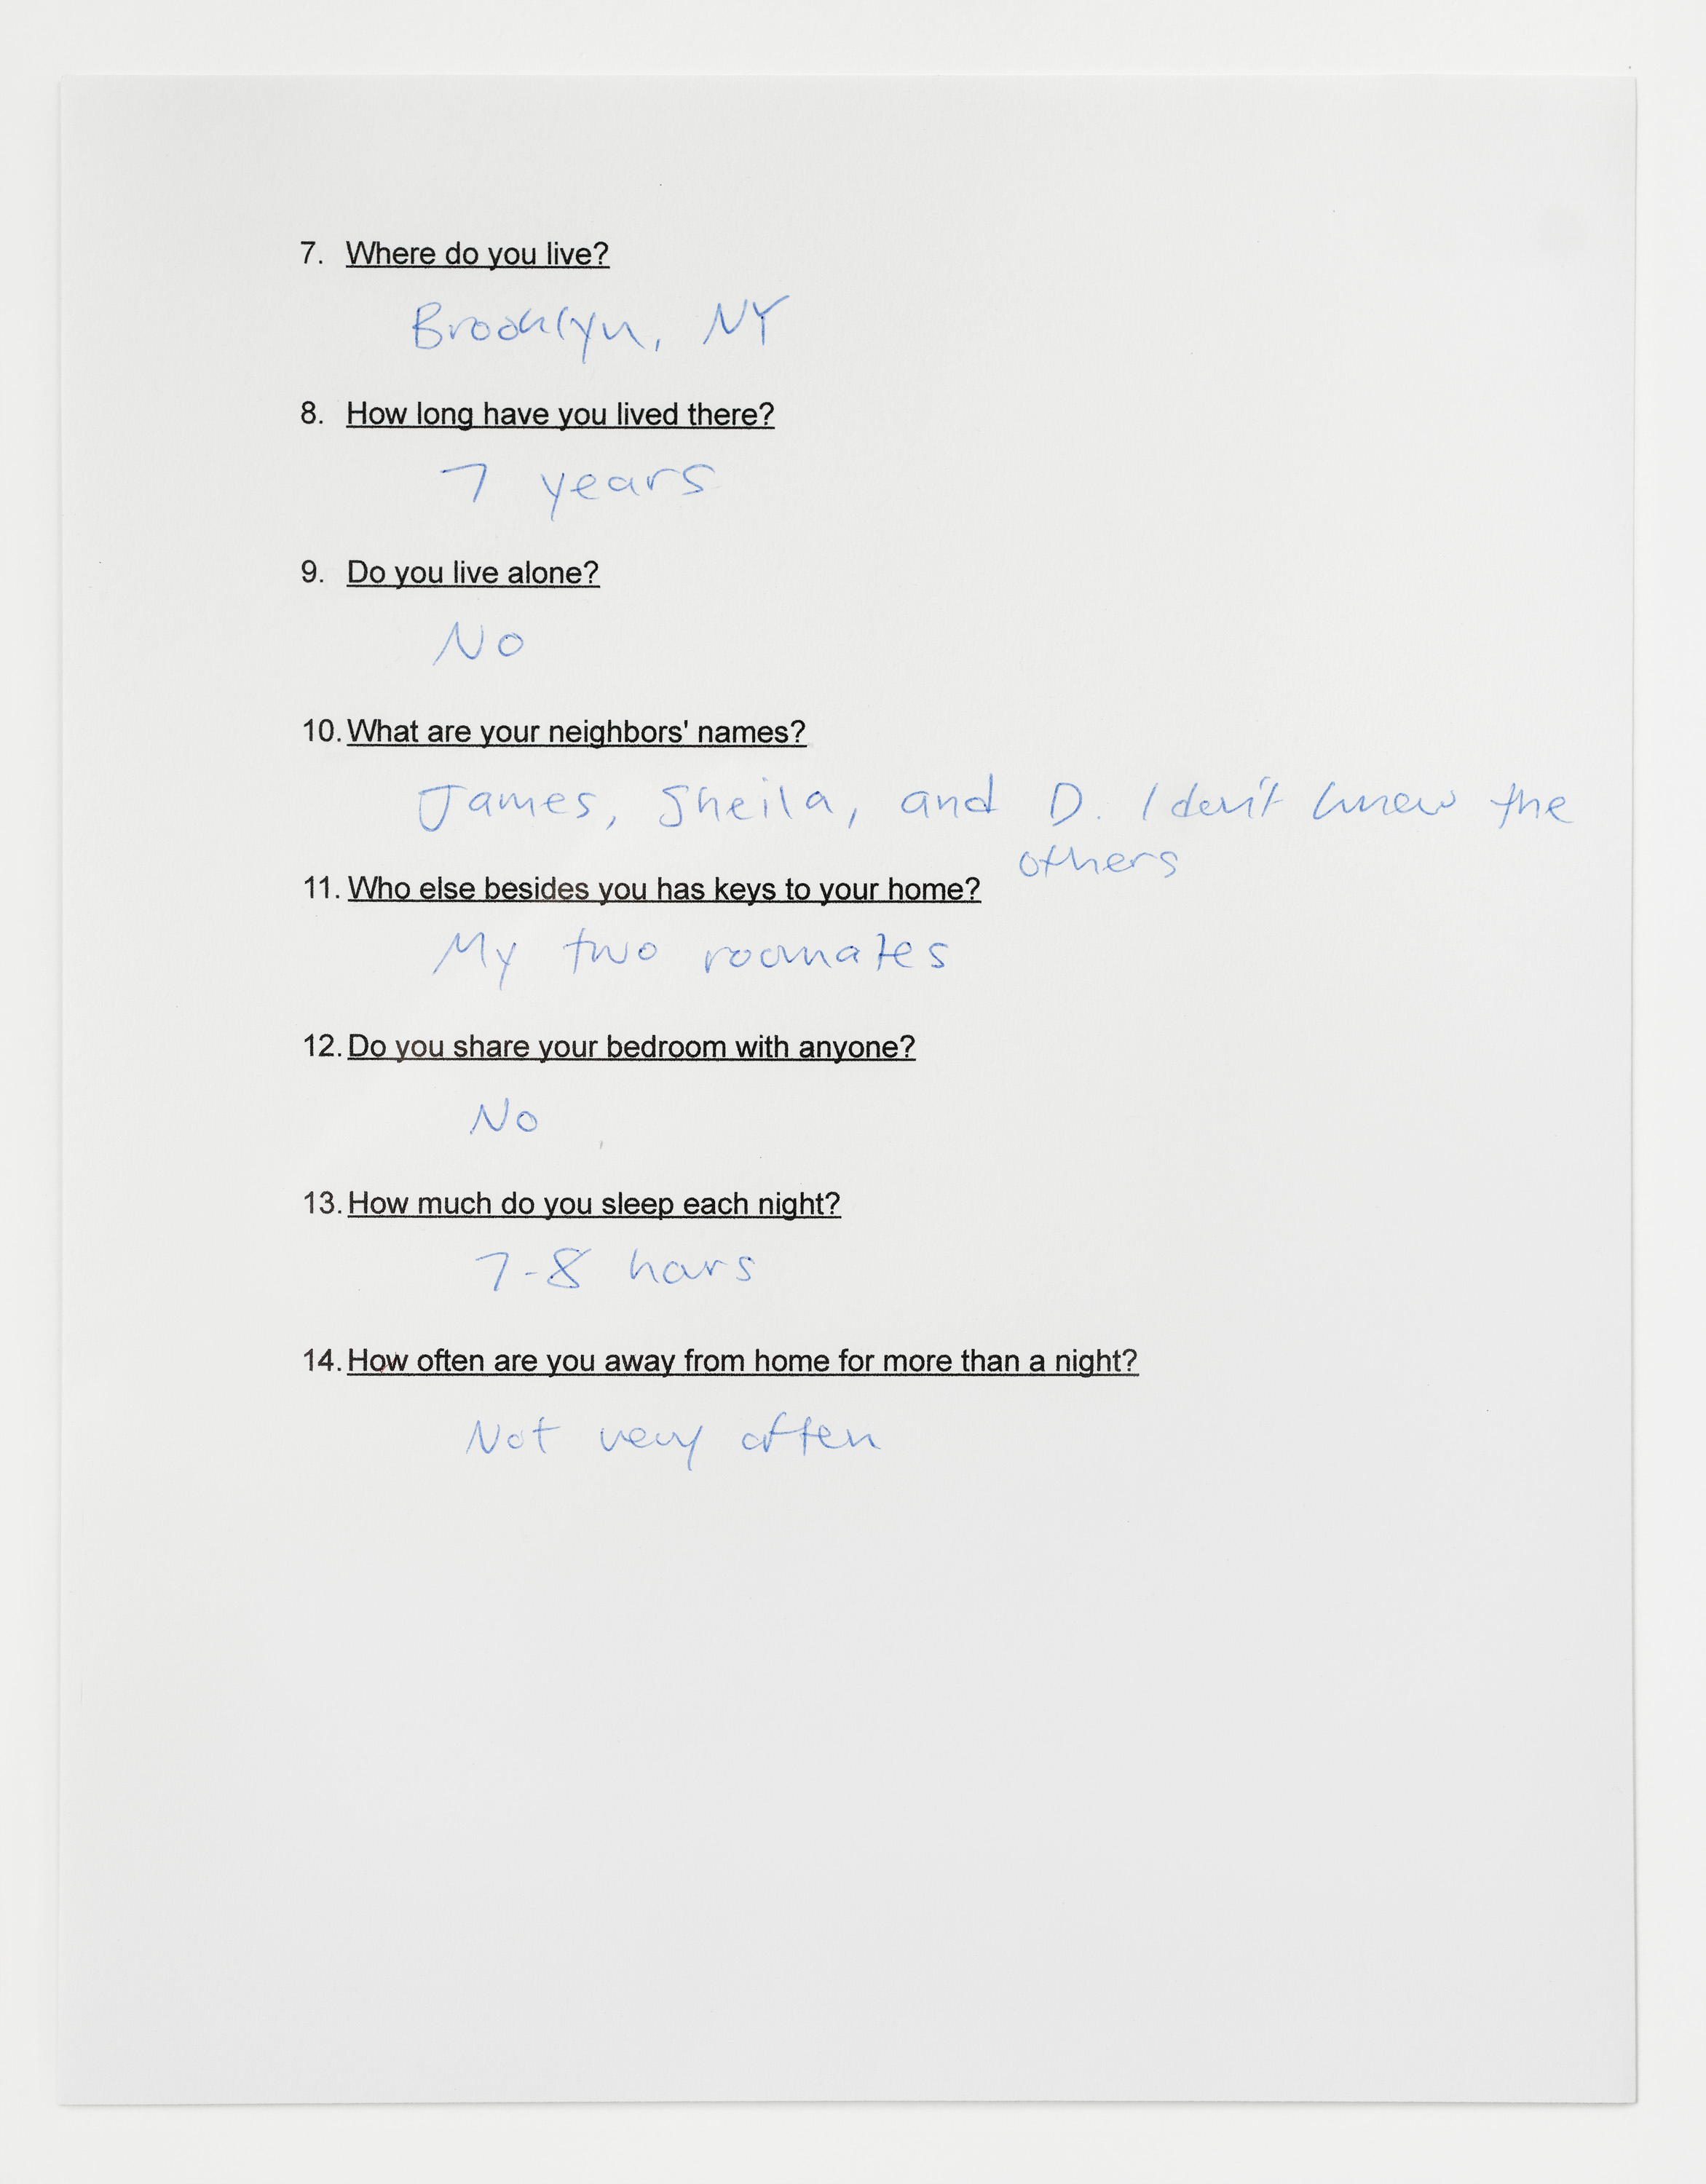 7. Where do you live?
Brooklyn, NY
8. How long have you lived there?
7 years
9. Do you live alone?
No
10. What are your neighbors' names?
James, Sheila, and D. I don't know the
others
11. Who else besides you has keys to your home?
My two roomates
12. Do you share your bedroom with anyone?
No
13. How much do you sleep each night?
7-8 hours
14. How often are you away from home for more than a night?
Not very often